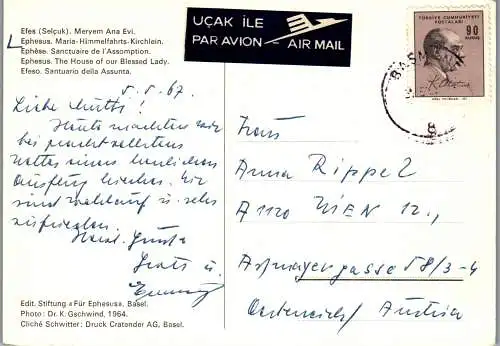 Efes (Selçuk). Meryem Ana Evi.
Ephesus. Maria-Himmelfahrts-Kirchlein.
Ephèse. Sanctuaire de l'Assomption.
Ephesus. The House of our Blessed Lady.
Efeso. Santuario della Assunta.
UÇAK İLE
PAR AVION - AIR MAIL
TÜRKİYE CUMHURİYETİ
POSTALARI
90
KURUŞ
8
5.5.67.
Liebe Mutti!
Heute machten wir
bei prachtvollstem
Wetter einen herrlichen
Ausflug hierher. Wir
sind wohlauf u. sehr
zufrieden.
Frau
Anna Rippel
A 1120 WIEN 12.,
58/3-4
Oesterreich / Austria
Edit. Stiftung «Für Ephesus», Basel.
Photo: Dr. K. Gschwind, 1964.
Cliché Schwitter: Druck Cratander AG, Basel.